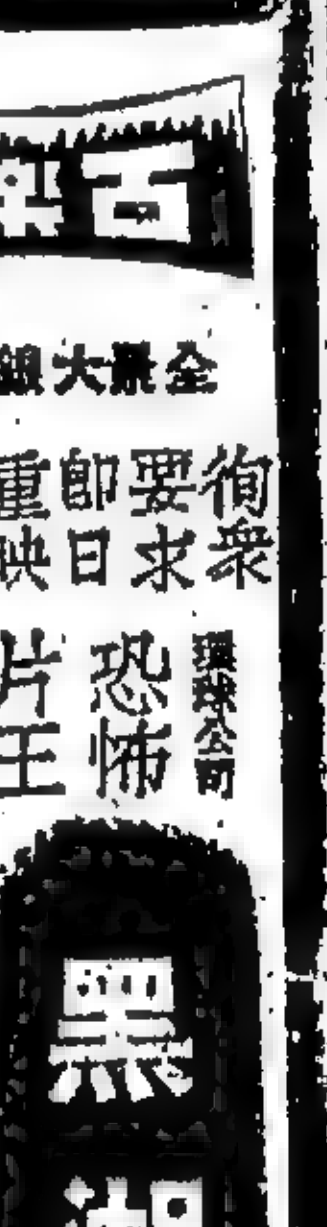 全景大銀
徇衆
要求
即日
重映
環球公司
恐怖
片王
黑